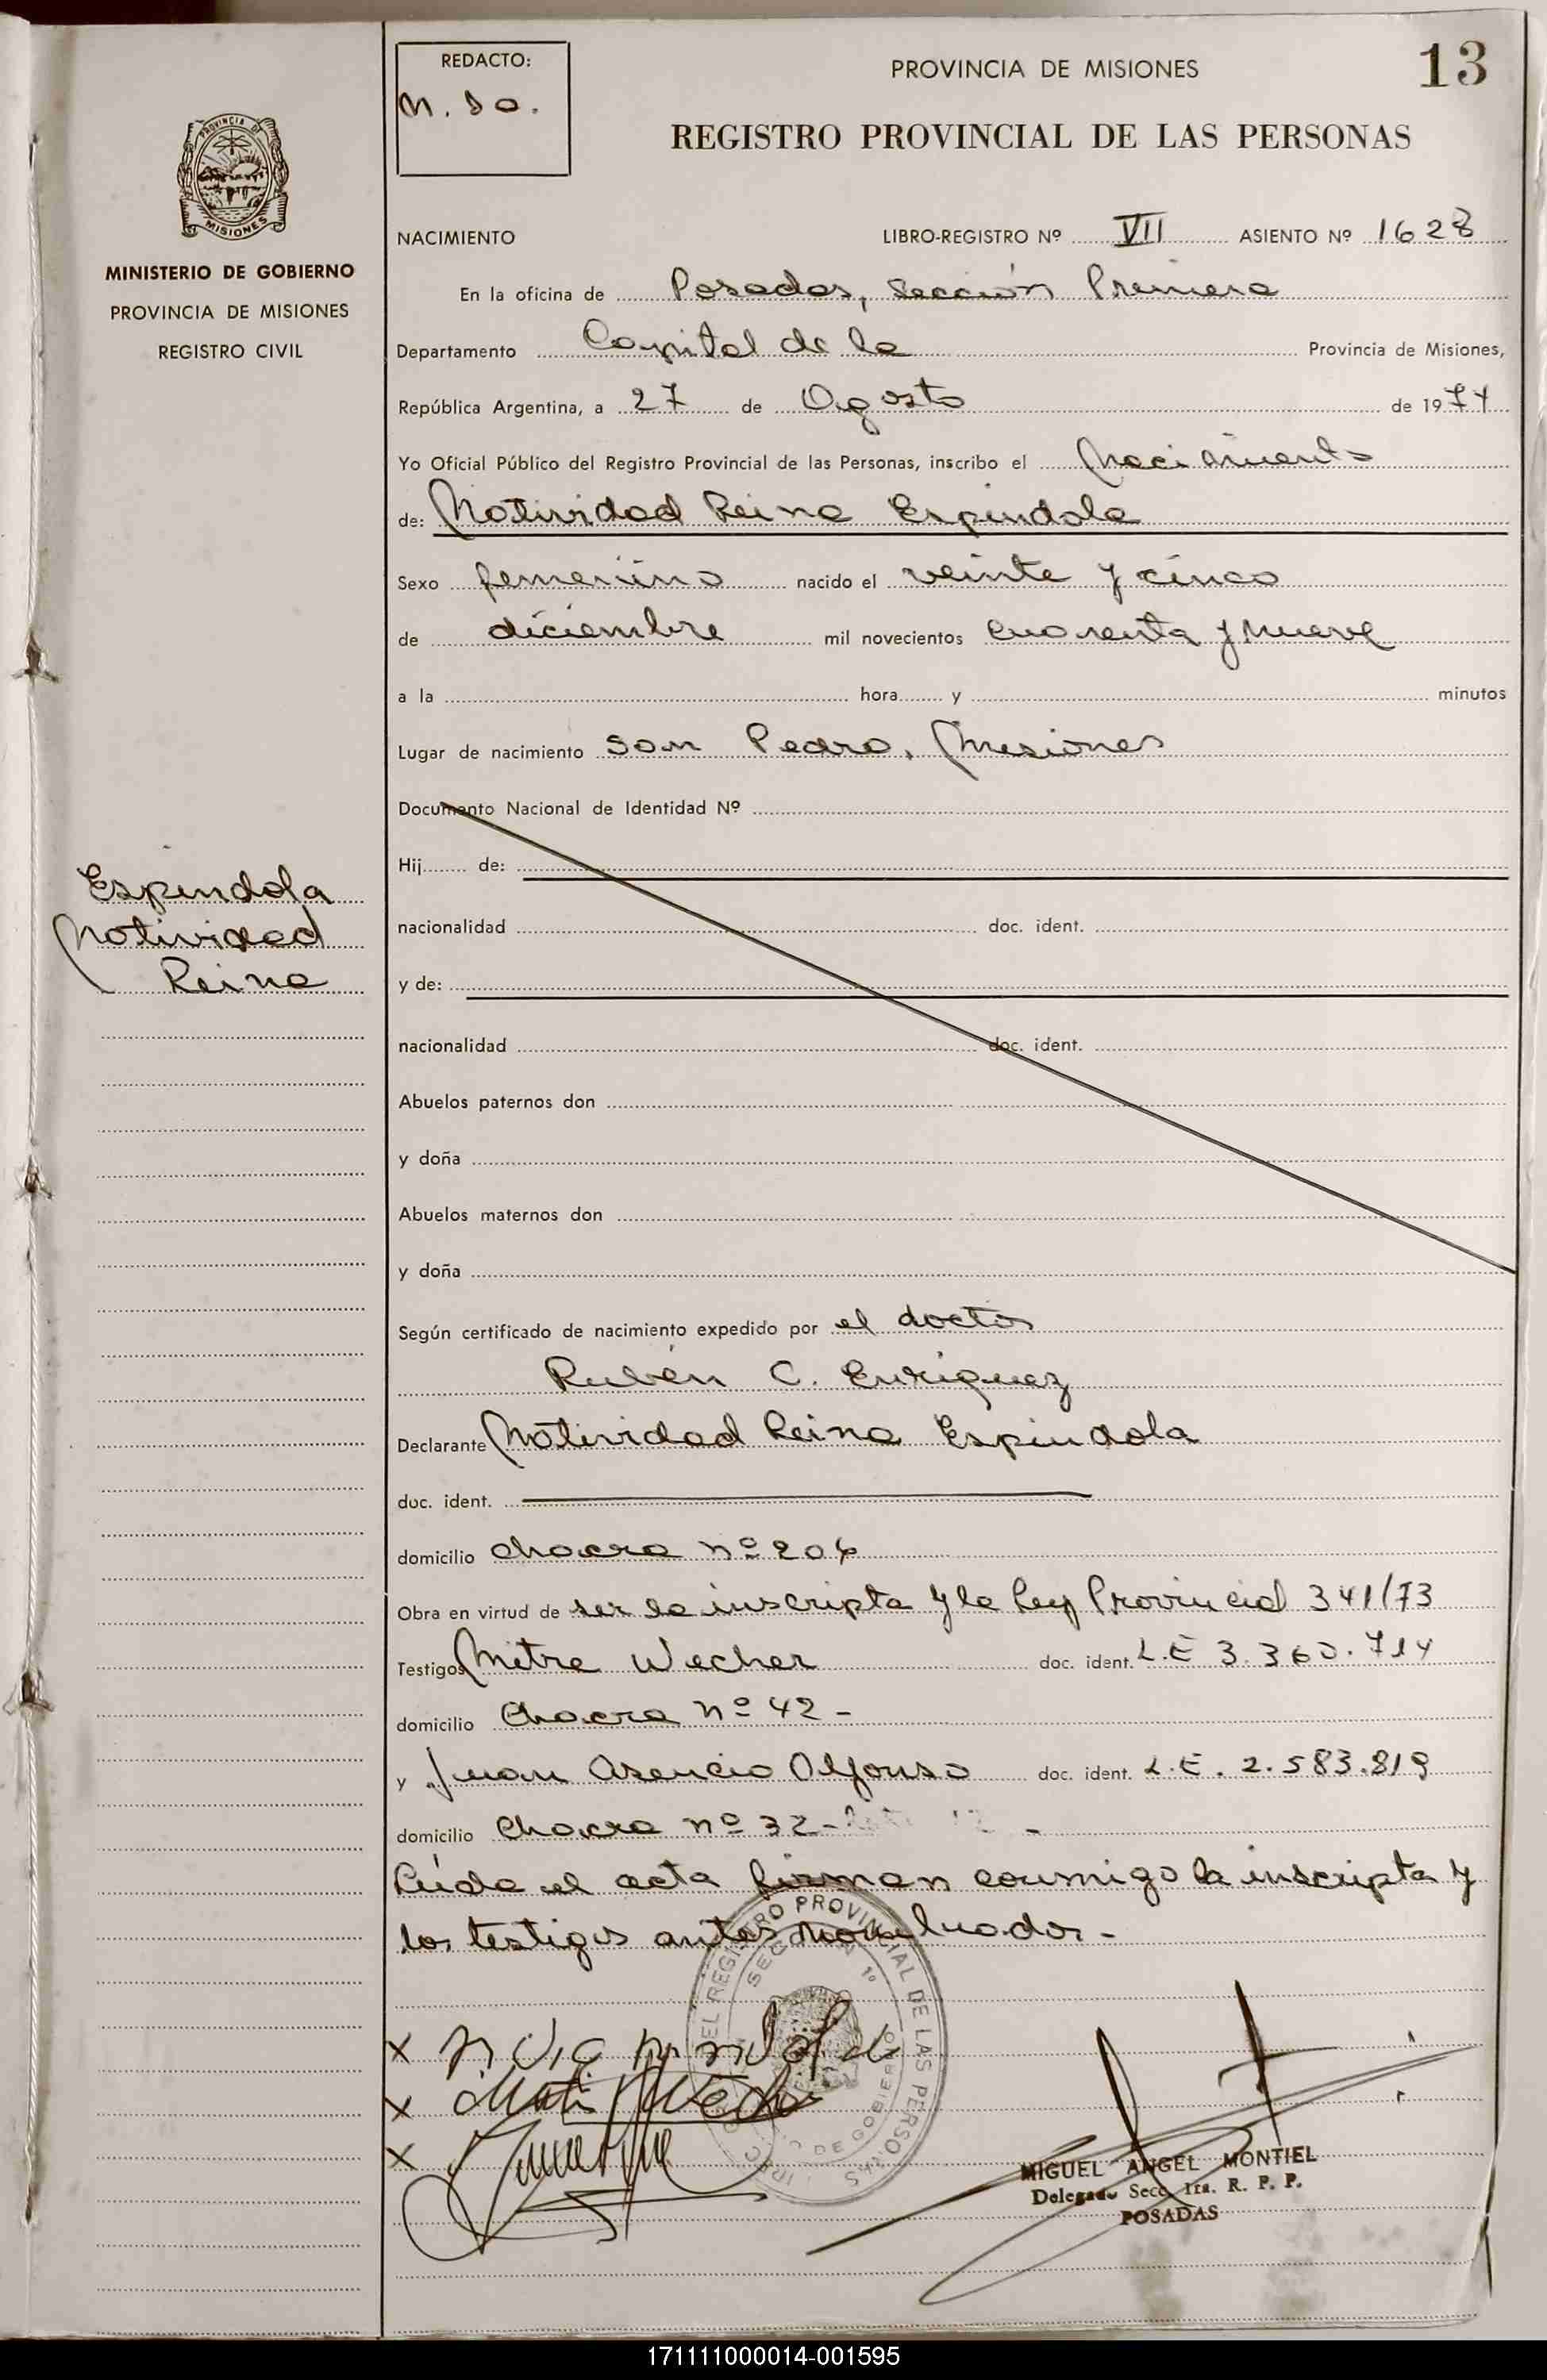 REDACTO:
PROVINCIA DE MISIONES
13
REGISTRO PROVINCIAL DE LAS PERSONAS
PROVINCIA DE
MISIONES
MINISTERIO DE GOBIERNO
PROVINCIA DE MISIONES
REGISTRO CIVIL
NACIMIENTO LIBRO-REGISTRO Nº VII ASIENTO Nº 1628
En la oficina de Posadas, Sección Primera
Departamento Capital de la Provincia de Misiones,
República Argentina, a 27 de Agosto de 1974
Yo Oficial Público del Registro Provincial de las Personas, inscribo el Nacimiento
de: Natividad Reina Espindola
Sexo femenino nacido el veinte y cinco
de diciembre mil novecientos cuarenta y nueve
a la hora y minutos
Lugar de nacimiento San Pedro, Misiones
Documento Nacional de Identidad Nº
Hij de:
Espindola
Natividad
Reina
nacionalidad doc. ident.
y de:
nacionalidad doc. ident.
Abuelos paternos don
y doña
Abuelos maternos don
y doña
Según certificado de nacimiento expedido por el doctor
Rubén C. Enriquez
Declarante Natividad Reina Espindola
doc. ident.
domicilio Chacra nº 206
Obra en virtud de ser la inscripta y la Ley Provincial 341/73
Testigos Mitre Wecher doc. ident. L.E 3.360.714
domicilio Chacra nº 42 -
y Juan Asencio Alfonso doc. ident. L.E. 2.583.819
domicilio Chacra nº 32 -
Leída el acta firman conmigo la inscripta y
los testigos antes nombrados. -
MIGUEL ANGEL MONTIEL
Delegado Secc. 1ra. R. P. P.
POSADAS
171111000014-001595